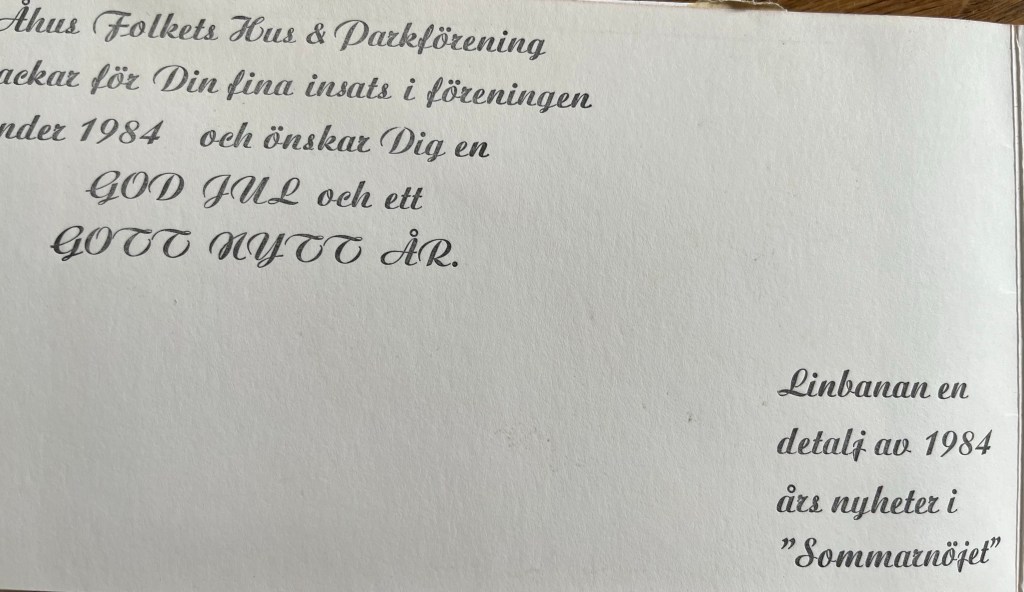 Åhus Folkets Hus & Parkförening
ackar för Din fina insats i föreningen
nder 1984 och önskar Dig en
GOD JUL och ett
GOTT NYTT ÅR.
Linbanan en
detalj av 1984
års nyheter i
”Sommarnöjet”